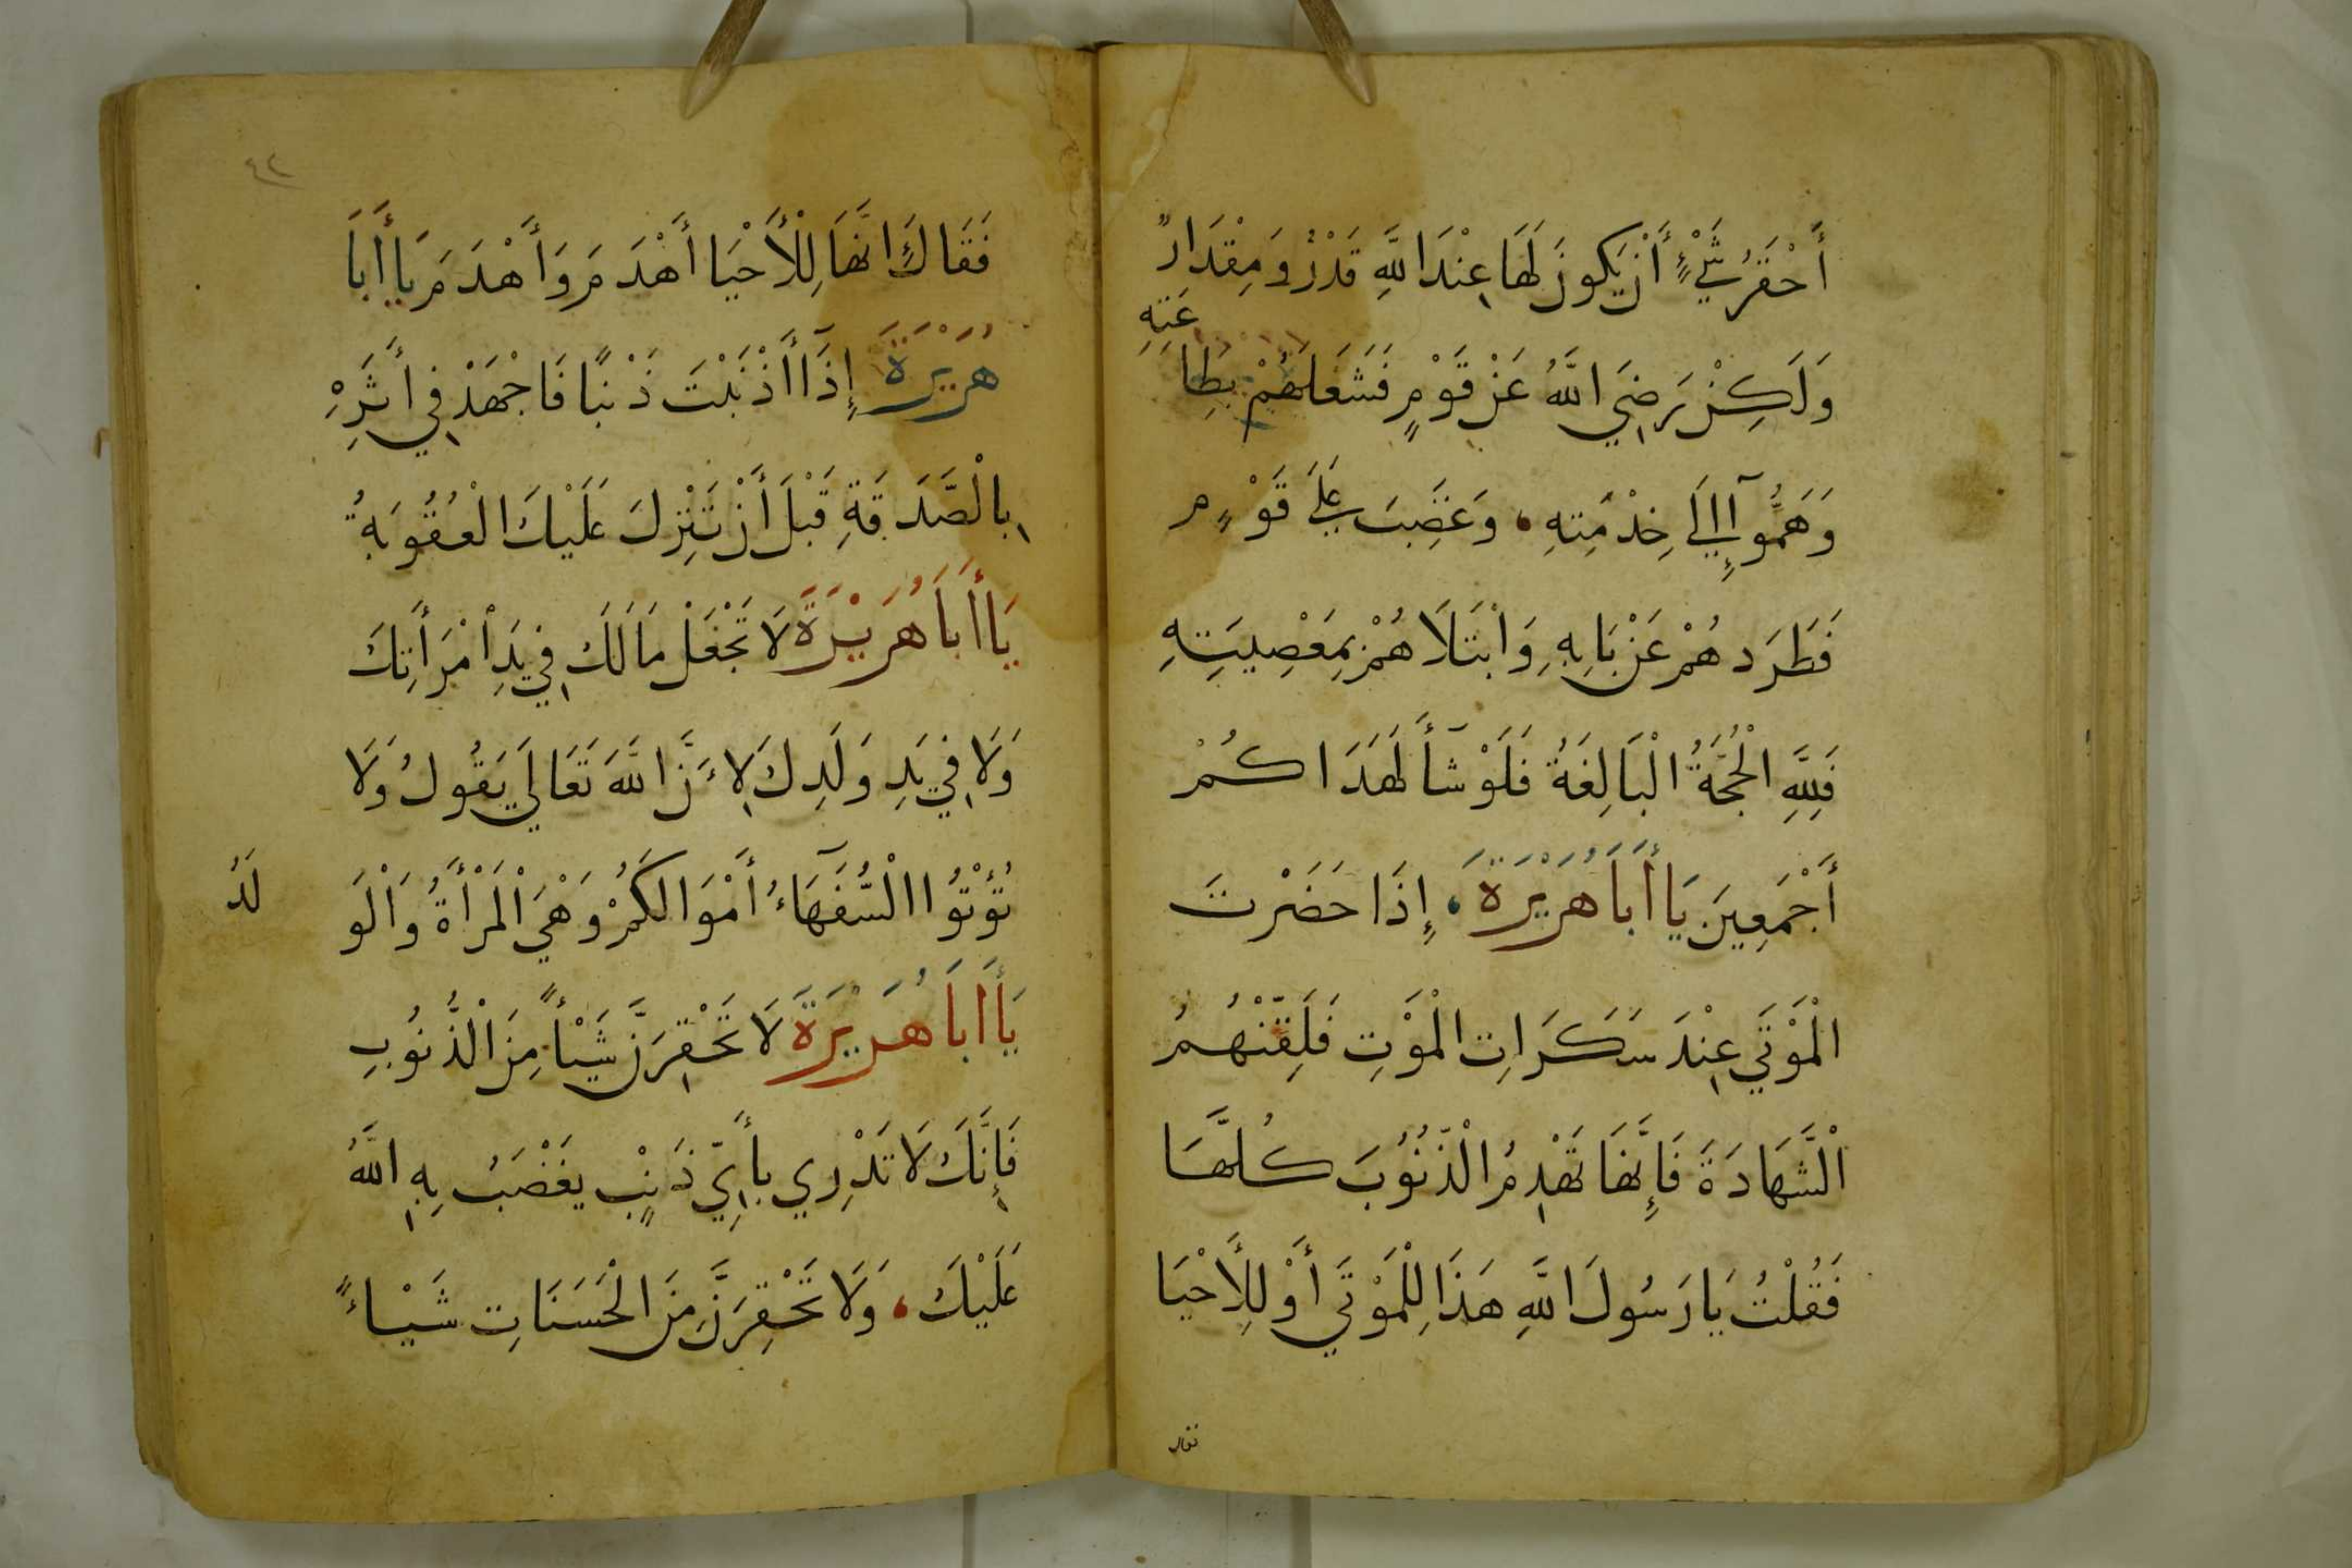 أَحْقَرُ شَيْءٍ أَنْ يَكونَ لَهَا عِنْدَ اللَّهِ قَدْرٌ وَمِقْدَارٌ
وَلَكِنْ رَضِيَ اللَّهُ عَنْ قَوْمٍ فَشَغَلَهُمْ بِطِاعَتِهِ
وَهَمُّوآ إِلَي خِدْمَتِهِ، وَغَضِبَ عَلَي قَوْمٍ
فَطَرَدهُمْ عَنْ بَابِهِ وَابْتَلَاهُمْ بِمَعْصِيَتِهِ
فَلِلَّهِ الْحُجَّةُ الْبَالِغَةُ فَلَوْ شَآأَ لَهَدَاكُمْ
أَجْمَعِينَ يَا أَبَا هُرَيْرَةَ، إِذَا حَضَرْتَ
الْمَوْتَي عِنْدَ سَكَرَاتِ الْمَوْتِ فَلَقِّنْهُمُ
الْشَّهَادَةَ فَإِنَّهَا تَهْدِمُ الْذُّنُوُبَ كُلَّهَا
فَقُلْتُ يَا رَسُولَ اللَّهِ هَذَا لِلْمَوْتَي أَوْ لِلْأَحْيَا
فقال
٤٢
فَقَالَ إِنَّهَا لِلْأَحْيَا أَهْدَمَ وَأَهْدَمَ يَا أَبَا
هُرَيْرَةَ إِذَآ أَذْنَبْتَ ذَنْبًا فَاجْهَدْ فِي أَثَرِهْ
بِالْصَّدَقَةِ قَبْلَ أَنْ تَنْزِلَ عَلَيْكَ الْعُقُوبَةُ
يَا أَبَا هُرَيْرَةَ لَا تَجْعَلْ مَالَكَ فِي يَدِ اْمْرَأَتِكَ
وَلَا فِي يَدِ وَلَدِكَ لِاءَنَّ اللَّهَ تَعَالَي يَقُولُ وَلَا
تُؤْتُوُا الْسُّفَهَآءُ أَمْوَالَكُمْ وَهْيَ الْمَرْأَةُ وَالْوَلَدُ
يَا أَبَا هُرَيْرَةَ لَا تَحْقِرَنَّ شَيْأً مِنَ الْذُّنُوُبِ
فَإِنَّكَ لَا تَدْرِي بأَيِّ ذَنْبٍ يغْضَبُ بِهِ اللَّهُ
عَلَيْكَ، وَلَا تَحْقِرَنَّ مِنَ الْحَسَنَاتِ شَيْاءً